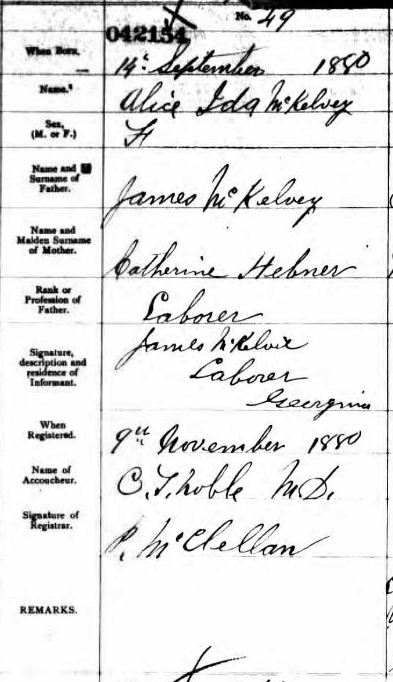 No. 49
042154
When Born, 14th September 1880
Name. Alice Ida McKelvey
Sex, (M. or F.) F
Name and Surname of Father. James McKelvey
Name and Maiden Surname of Mother. Catherine Hebner
Rank or Profession of Father. Laborer
Signature, description and residence of Informant. James McKelvie
Laborer
Georgina
When Registered. 9th November 1880
Name of Accoucheur. C. T. Noble M.D.
Signature of Registrar. P. McClellan
REMARKS.